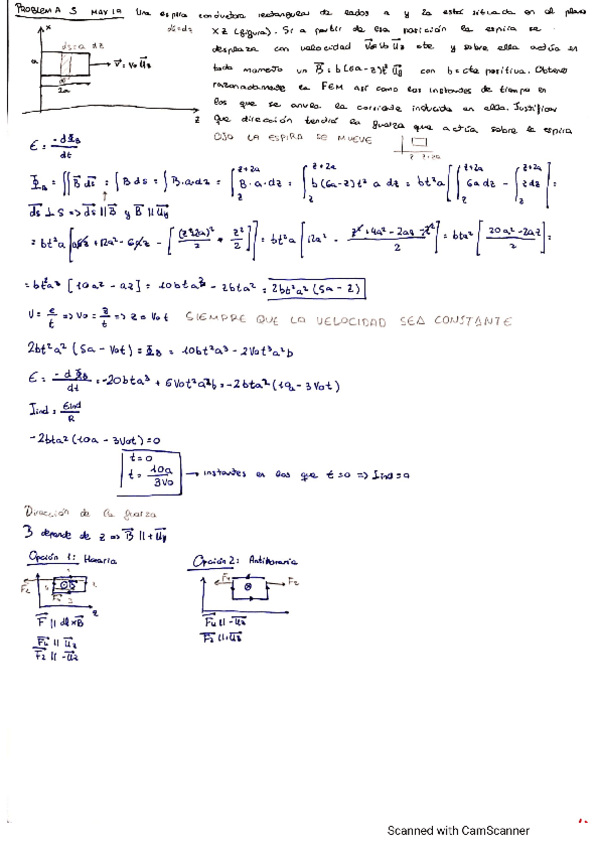 PROBLEMA 3 MAY 19 Una espira conductora rectangular de lados a y 2a está situada en el plano
XZ (figura). Si a partir de esa posición la espira se
desplaza con velocidad v=v0 uz cte y sobre ella actúa en
todo momento un B = b(6a-z)t² uy con b=cte positiva. Obtener
razonadamente la FEM así como los instantes de tiempo en
los que se anula la corriente inducida en ella. Justificar
que dirección tendrá la fuerza que actúa sobre la espira
x
ds=a dz
a
v=v0 uz
2a
z
OJO LA ESPIRA SE MUEVE
z z+2a
ε = -dΦB/dt
ds ⊥ s => ds || B y B || uy
= bt²a [10a² - 2az] = 10bt²a³ - 2bta² = 2bt²a²(5a - z)
V = e/t => v0 = z/t => z = v0t SIEMPRE QUE LA VELOCIDAD SEA CONSTANTE
2bt²a²(5a - v0t) = ΦB = 10bt²a³ - 2v0t³a²b
ε = -dΦB/dt = -20bta³ + 6v0t²a²b = -2bta²(10a - 3v0t)
Iind = εind/R
-2bta²(10a - 3v0t) = 0
t=0
t = 10a/3v0 → instantes en los que ε=0 => Iind=0
Dirección de la fuerza
B depende de z => B || + uy
Opción 1: Horaria
Opción 2: Antihoraria
F || dl×B
Scanned with CamScanner